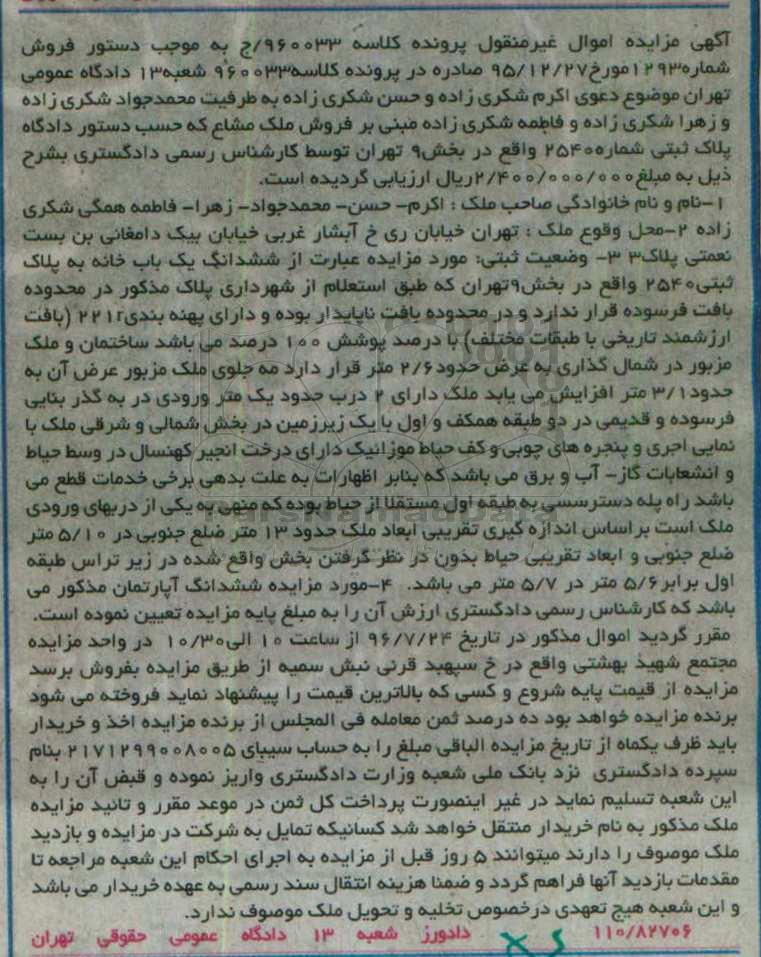 آگهی مزایده اموال غیرمنقول پرونده کلاسه ۹۶۰۰۳۳/ج به موجب دستور فروش
شماره۱۲۹۳مورخ۹۵/۱۲/۲۷ صادره در پرونده کلاسه۹۶۰۰۳۳ شعبه۱۳ دادگاه عمومی
تهران موضوع دعوی اکرم شکری زاده و حسن شکری زاده به طرفیت محمدجواد شکری زاده
و زهرا شکری زاده و فاطمه شکری زاده مبنی بر فروش ملک مشاع که حسب دستور دادگاه
پلاک ثبتی شماره۲۵۴۰ واقع در بخش۹ تهران توسط کارشناس رسمی دادگستری بشرح
ذیل به مبلغ۲/۴۰۰/۰۰۰/۰۰۰ریال ارزیابی گردیده است.
۱-نام و نام خانوادگی صاحب ملک : اکرم- حسن- محمدجواد- زهرا- فاطمه همگی شکری
زاده ۲-محل وقوع ملک : تهران خیابان ری خ آبشار غربی خیابان بیک دامغانی بن بست
نعمتی پلاک۳ ۳- وضعیت ثبتی: مورد مزایده عبارت از ششدانگ یک باب خانه به پلاک
ثبتی۲۵۴۰ واقع در بخش۹تهران که طبق استعلام از شهرداری پلاک مذکور در محدوده
بافت فرسوده قرار ندارد و در محدوده بافت ناپایدار بوده و دارای پهنه بندی۲۲۱r (بافت
ارزشمند تاریخی با طبقات مختلف) با درصد پوشش ۱۰۰ درصد می باشد ساختمان و ملک
مزبور در شمال گذاری به عرض حدود۲/۶ متر قرار دارد مه جلوی ملک مزبور عرض آن به
حدود۳/۱ متر افزایش می یابد ملک دارای ۲ درب حدود یک متر ورودی در به گذر بنایی
فرسوده و قدیمی در دو طبقه همکف و اول با یک زیرزمین در بخش شمالی و شرقی ملک با
نمایی اجری و پنجره های چوبی و کف حیاط موزائیک دارای درخت انجیر کهنسال در وسط حیاط
و انشعابات گاز- آب و برق می باشد که بنابر اظهارات به علت بدهی برخی خدمات قطع می
باشد راه پله دسترسسی به طبقه اول مستقلا از حیاط بوده که منهی به یکی از دربهای ورودی
ملک است براساس اندازه گیری تقریبی ابعاد ملک حدود ۱۳ متر ضلع جنوبی در ۵/۱۰ متر
ضلع جنوبی و ابعاد تقریبی حیاط بدون در نظر گرفتن بخش واقع شده در زیر تراس طبقه
اول برابر۵/۶ متر در ۵/۷ متر می باشد. ۴-مورد مزایده ششدانگ آپارتمان مذکور می
باشد که کارشناس رسمی دادگستری ارزش آن را به مبلغ پایه مزایده تعیین نموده است.
مقرر گردید اموال مذکور در تاریخ ۹۶/۷/۲۴ از ساعت ۱۰ الی۱۰/۳۰ در واحد مزایده
مجتمع شهید بهشتی واقع در خ سپهبد قرنی نبش سمیه از طریق مزایده بفروش برسد
مزایده از قیمت پایه شروع و کسی که بالاترین قیمت را پیشنهاد نماید فروخته می شود
برنده مزایده خواهد بود ده درصد ثمن معامله فی المجلس از برنده مزایده اخذ و خریدار
باید ظرف یکماه از تاریخ مزایده الباقی مبلغ را به حساب سیبای ۲۱۷۱۲۹۹۰۰۸۰۰۵ بنام
سپرده دادگستری نزد بانک ملی شعبه وزارت دادگستری واریز نموده و قبض آن را به
این شعبه تسلیم نماید در غیر اینصورت پرداخت کل ثمن در موعد مقرر و تائید مزایده
ملک مذکور به نام خریدار منتقل خواهد شد کسانیکه تمایل به شرکت در مزایده و بازدید
ملک موصوف را دارند میتوانند ۵ روز قبل از مزایده به اجرای احکام این شعبه مراجعه تا
مقدمات بازدید آنها فراهم گردد و ضمنا هزینه انتقال سند رسمی به عهده خریدار می باشد
و این شعبه هیچ تعهدی درخصوص تخلیه و تحویل ملک موصوف ندارد.
۱۱۰/۸۲۷۰۶ دادورز شعبه ۱۳ دادگاه عمومی حقوقی تهران